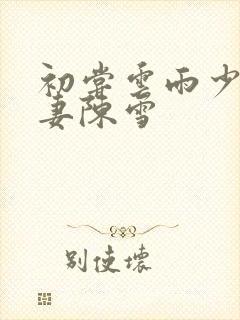 初尝云雨少
妻陈雪
别使坏